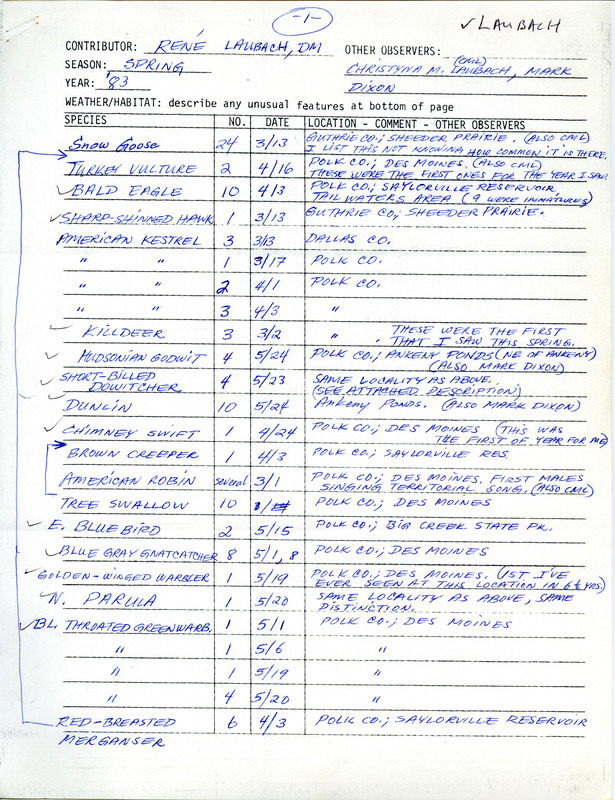 -1-
✓ LAUBACH
CONTRIBUTOR: RENÉ LAUBACH, DM OTHER OBSERVERS:
SEASON: SPRING (CML)
CHRISTYNA M. LAUBACH, MARK
YEAR: '83 DIXON
WEATHER/HABITAT: describe any unusual features at bottom of page
SPECIES NO. DATE LOCATION - COMMENT - OTHER OBSERVERS
SNOW GOOSE 24 3/13 GUTHRIE CO.; SHEEDER PRAIRIE. (ALSO CML)
I LIST THIS NOT KNOWING HOW COMMON IT IS THERE.
TURKEY VULTURE 2 4/16 POLK CO.; DES MOINES. (ALSO CML)
THESE WERE THE FIRST ONES FOR THE YEAR I SAW.
✓ BALD EAGLE 10 4/3 POLK CO.; SAYLORVILLE RESERVOIR,
TAILWATERS AREA (9 WERE IMMATURES)
✓ SHARP-SHINNED HAWK 1 3/13 GUTHRIE CO; SHEEDER PRAIRIE.
AMERICAN KESTREL 3 3/13 DALLAS CO.
" " 1 3/17 POLK CO.
" " 2 4/1 POLK CO.
" " 3 4/3 "
✓ KILLDEER 3 3/2 " THESE WERE THE FIRST
THAT I SAW THIS SPRING.
✓ HUDSONIAN GODWIT 4 5/24 POLK CO.; ANKENY PONDS (NE OF ANKENY)
(ALSO MARK DIXON)
✓ SHORT-BILLED
DOWITCHER 4 5/23 SAME LOCALITY AS ABOVE.
(SEE ATTACHED DESCRIPTION)
✓ DUNLIN 10 5/24 ANKENY PONDS. (ALSO MARK DIXON)
✓ CHIMNEY SWIFT 1 4/24 POLK CO.; DES MOINES (THIS WAS
THE FIRST OF YEAR FOR ME)
BROWN CREEPER 1 4/3 POLK CO.; SAYLORVILLE RES.
AMERICAN ROBIN several 3/1 POLK CO.; DES MOINES. FIRST MALES
SINGING TERRITORIAL SONG. (ALSO CML)
TREE SWALLOW 10 POLK CO.; DES MOINES
✓ E. BLUEBIRD 2 5/15 POLK CO.; BIG CREEK STATE PK.
✓ BLUE GRAY GNATCATCHER 8 5/1, 8 POLK CO.; DES MOINES
✓ GOLDEN-WINGED WARBLER 1 5/19 POLK CO.; DES MOINES. (1ST I'VE
EVER SEEN AT THIS LOCATION IN 6½ YRS)
✓ N. PARULA 1 5/20 SAME LOCALITY AS ABOVE, SAME
DISTINCTION.
✓ BL. THROATED GREEN WARB. 1 5/1 POLK CO.; DES MOINES
" 1 5/6 "
" 1 5/19 "
" 4 5/20 "
RED-BREASTED 6 4/3 POLK CO.; SAYLORVILLE RESERVOIR
MERGANSER